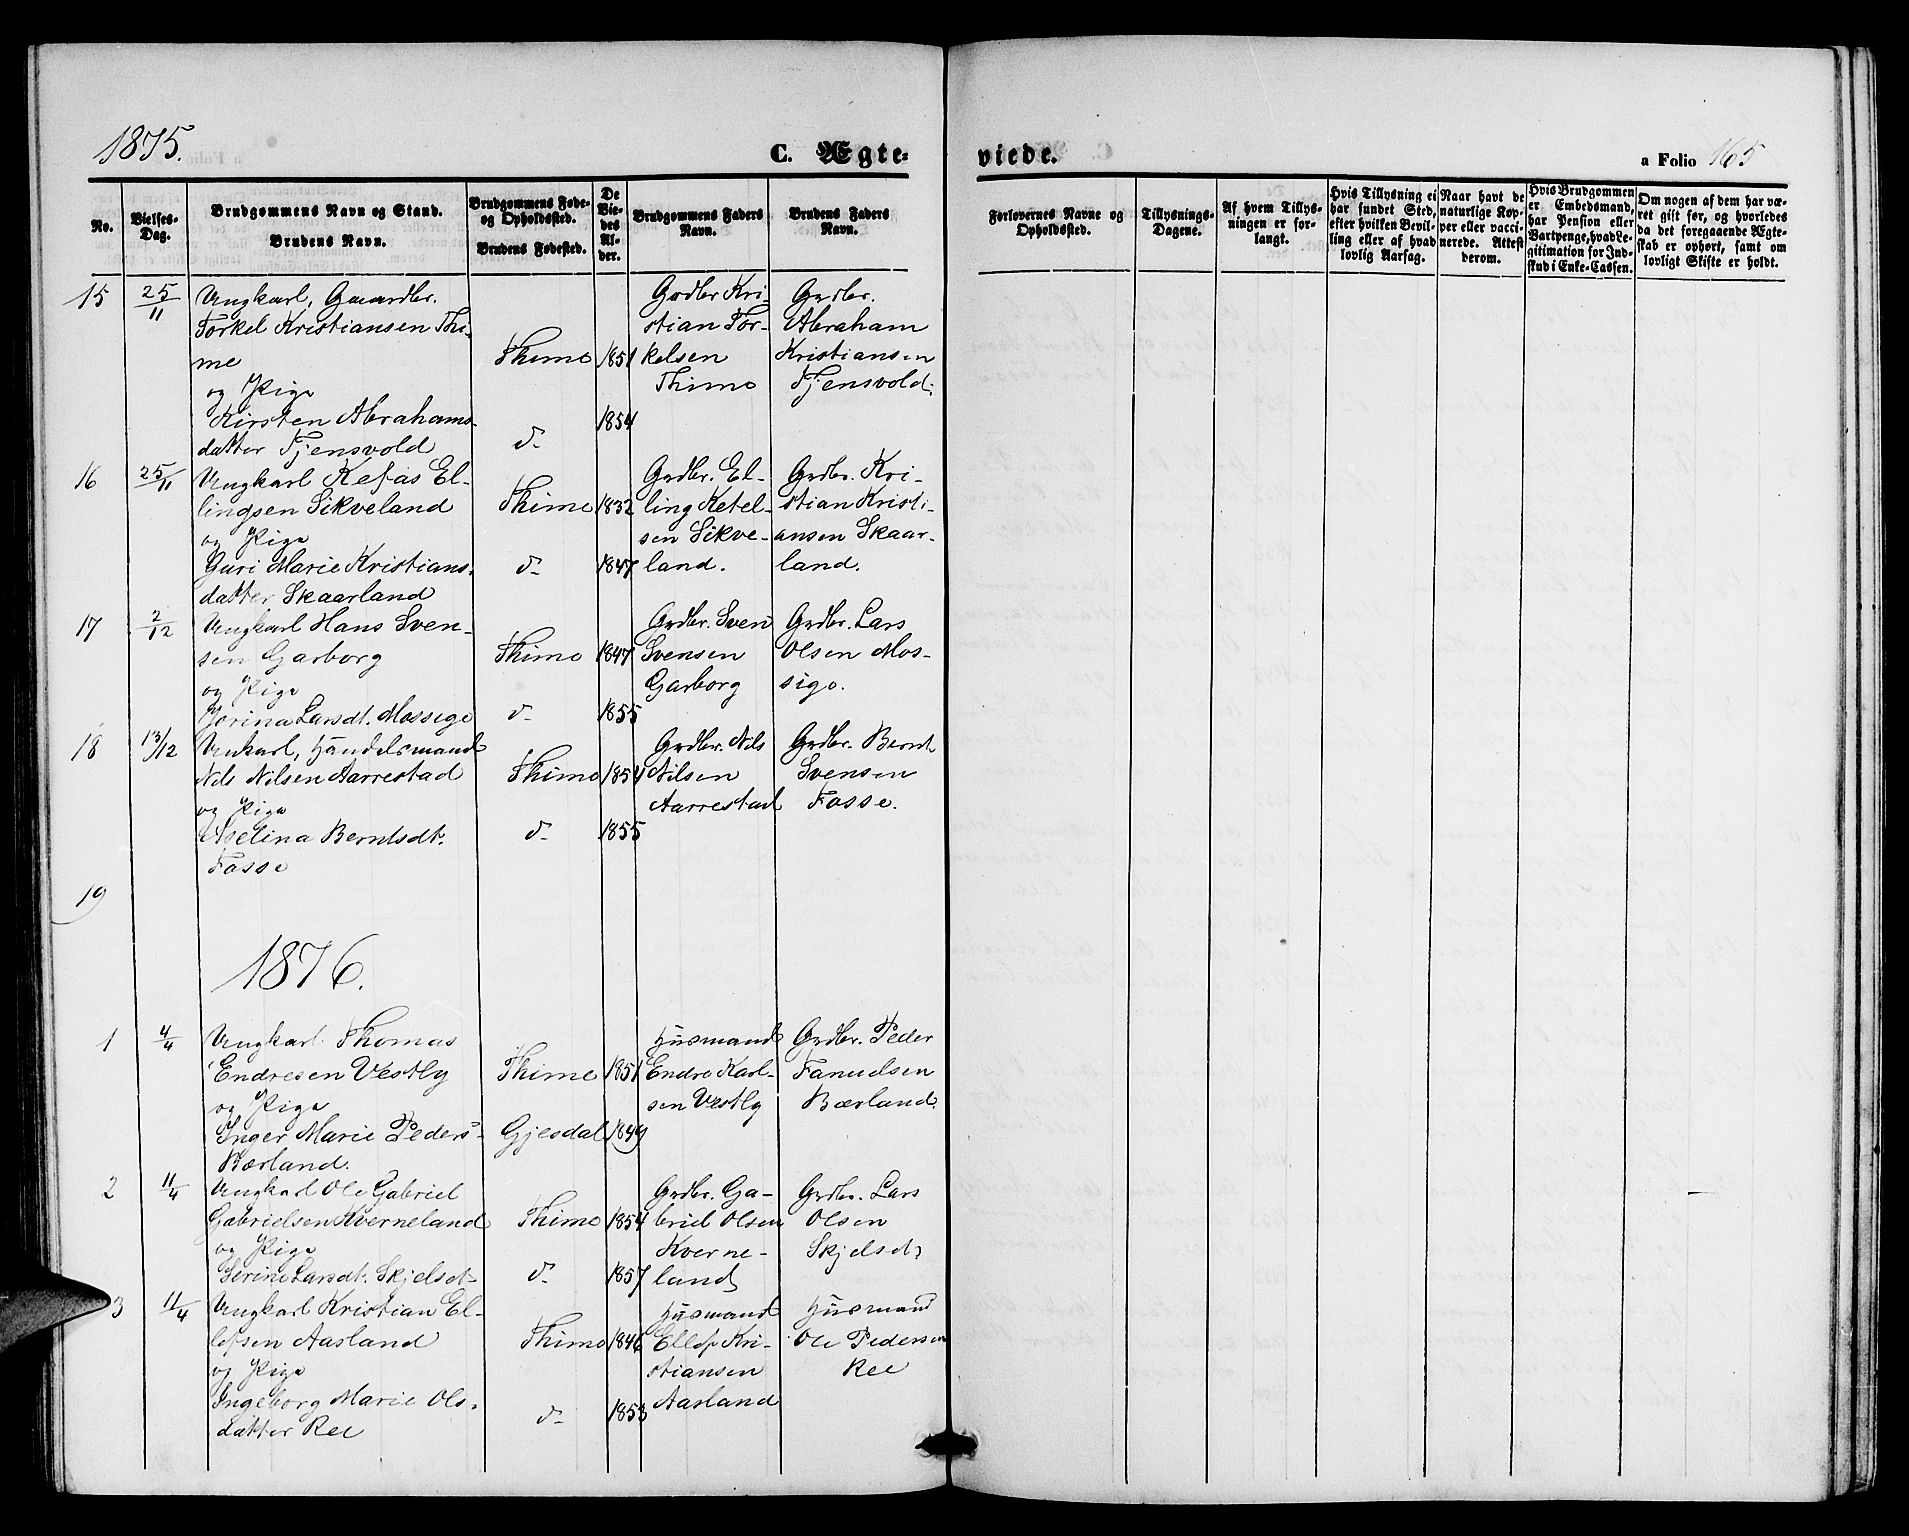 1875.
C. Ægte-
viede.
a Folio 165
No.
Vielses-
Dag.
Brudgommens Navn og Stand.
Brudens Navn.
Brudgommens Føde-
og Opholdssted.
Brudens Fødested.
De
Vie-
des
Al-
der.
Brudgommens Faders
Navn.
Brudens Faders
Navn.
Forlovernes Navne og
Opholdssted.
Tillysnings-
Dagene.
Af hvem Tillys-
ningen er for-
langt.
Hvis Tillysning ei
har fundet Sted,
efter hvilken Bevil-
ling eller af hvad
lovlig Aarsag.
Naar havt de
naturlige Kop-
per eller vacci-
nerede. Attest
derom.
Hvis Brudgommen
er Embedsmand,
har Pension eller
Vartpenge, hvad Le-
gitimation for Ind-
skud i Enke-Cassen.
Om nogen af dem har væ-
ret gift før, og hvorledes
da det foregaaende Ægte-
skab er ophørt, samt om
lovligt Skifte er holdt.
15
25/11
Ungkarl, Gaardbr.
Torkel Kristiansen Thi-
me
og Pige
Kirsten Abrahams-
datter Tjensvold
Thime
d-
1851
1854
Grdbr Kri-
stian Tor-
kelsen
Thime
Grdbr.
Abraham
Kristiansen
Tjensvold.
16
25/11
Ungkarl Kefas El-
lingsen Sikveland
og Pige
Guri Marie Kristians-
datter Skaarland
Thime
d-
1832
1847
Grdbr. El-
ling Ketel-
sen Sikve-
land.
Grdbr. Kri-
stian Kristi-
ansen Skaar-
land.
17
2/12
Ungkarl Hans Sven-
sen Garborg
og Pige
Jorina Larsdt. Mossige
Thime
d-
1847
1855
Grdbr. Sven
Svensen
Garborg
Grdbr. Lars
Olsen Mos-
sige.
18
13/12
Unkarl, Handelsmand
Nils Nilsen Aarrestad
og Pige
Aselina Berntsdt.
Fosse
Thime
d-
1854
1855
Grdbr. Nils
Nilsen
Aarrestad
Grdbr. Bernt
Svensen
Fosse.
19
1876.
1
4/4
Ungkarl Thomas
Endresen Vestly
og Pige
Inger Marie Peders-
Bærland.
Thime
Gjesdal
1851
1849
Husmand
Endre Karl-
sen Vestly
Grdbr. Peder
Fanuelsen
Bærland.
2
11/4
Ungkarl Ole Gabriel
Gabrielsen Kverneland
og Pige
Serine Larsdt. Skjelsd-
Thime
d-
1854
1857
Grdbr. Ga-
briel Olsen
Kverne-
land
Grdbr. Lars
Olsen
3
11/4
Ungkarl Kristian El-
lefsen Aasland
og Pige
Ingeborg Marie Ols-
datter Ree
Thime
d-
1846
1853
Husmand
Ellef Kri-
stiansen
Aasland
Husmand
Ole Pedersen
Ree